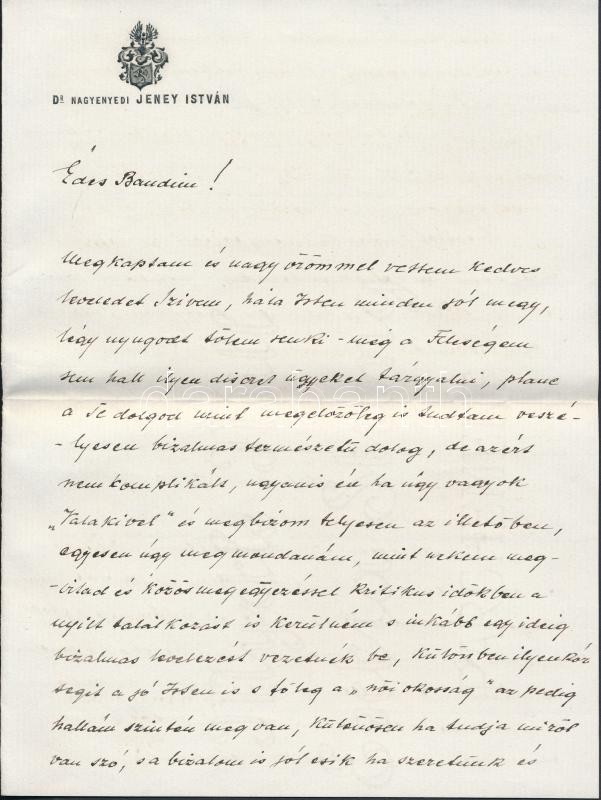 Dʀ NAGYENYEDI JENEY ISTVÁN
Édes Bandim!
Megkaptam és nagy örömmel vettem kedves
leveledet Szivem, hála Isten minden jól megy,
légy nyugodt tőlem senki - még a Feleségem
sem hall ilyen discret ügyeket tárgyalni, plane
a Te dolgod mint megelőzőleg is tudtam veszé-
-lyesen bizalmas természetü dolog, de azért
nem komplikált, ugyanis én ha úgy vagyok
"Valakivel" és megbizom teljesen az illetőben,
egyesen úgy megmondanám, mint nekem meg-
-irtad és közös megegyezéssel kritikus időkben a
nyilt találkozást is kerülném s inkább egy ideig
bizalmas levelezést vezetnék be, különben ilyenkor
segit a jó Isten is s főleg a "női okosság" az pedig
hallám szintén meg van, különösen ha tudja miről
van szó, s a bizalom is jól esik ha szeretünk és